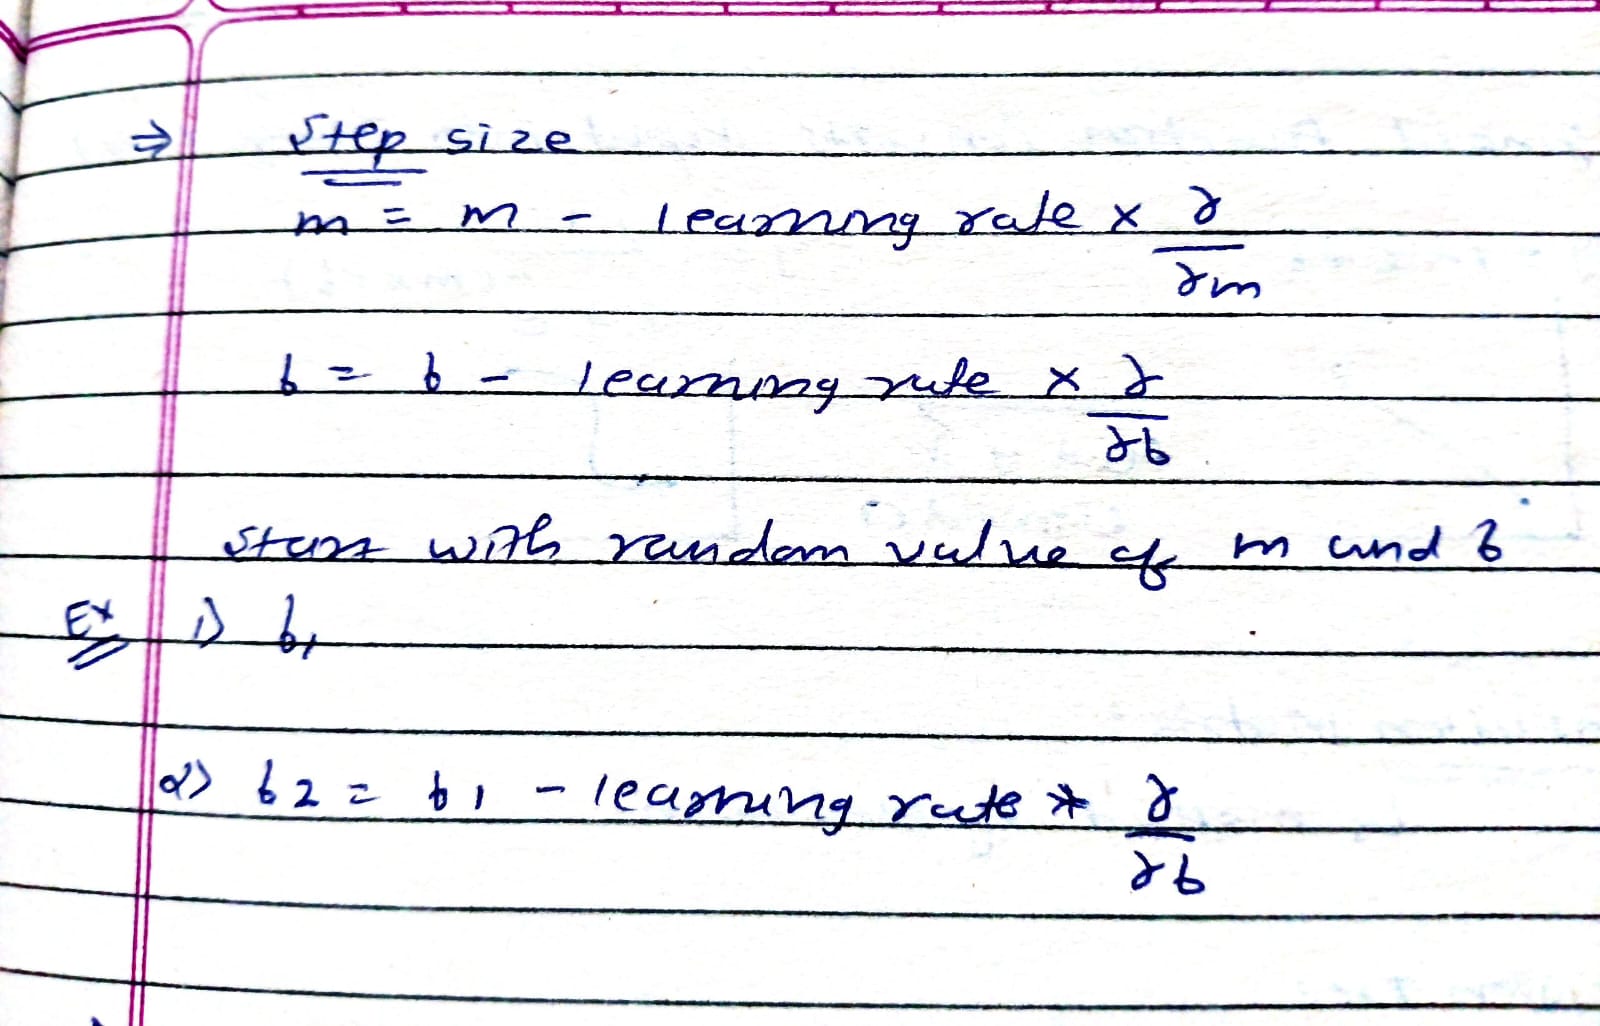 ⇒ Step size
m = m - learning rate × ∂/∂m
b = b - learning rate × ∂/∂b
start with random value of m and b
Ex 1) b1
2) b2 = b1 - learning rate * ∂/∂b